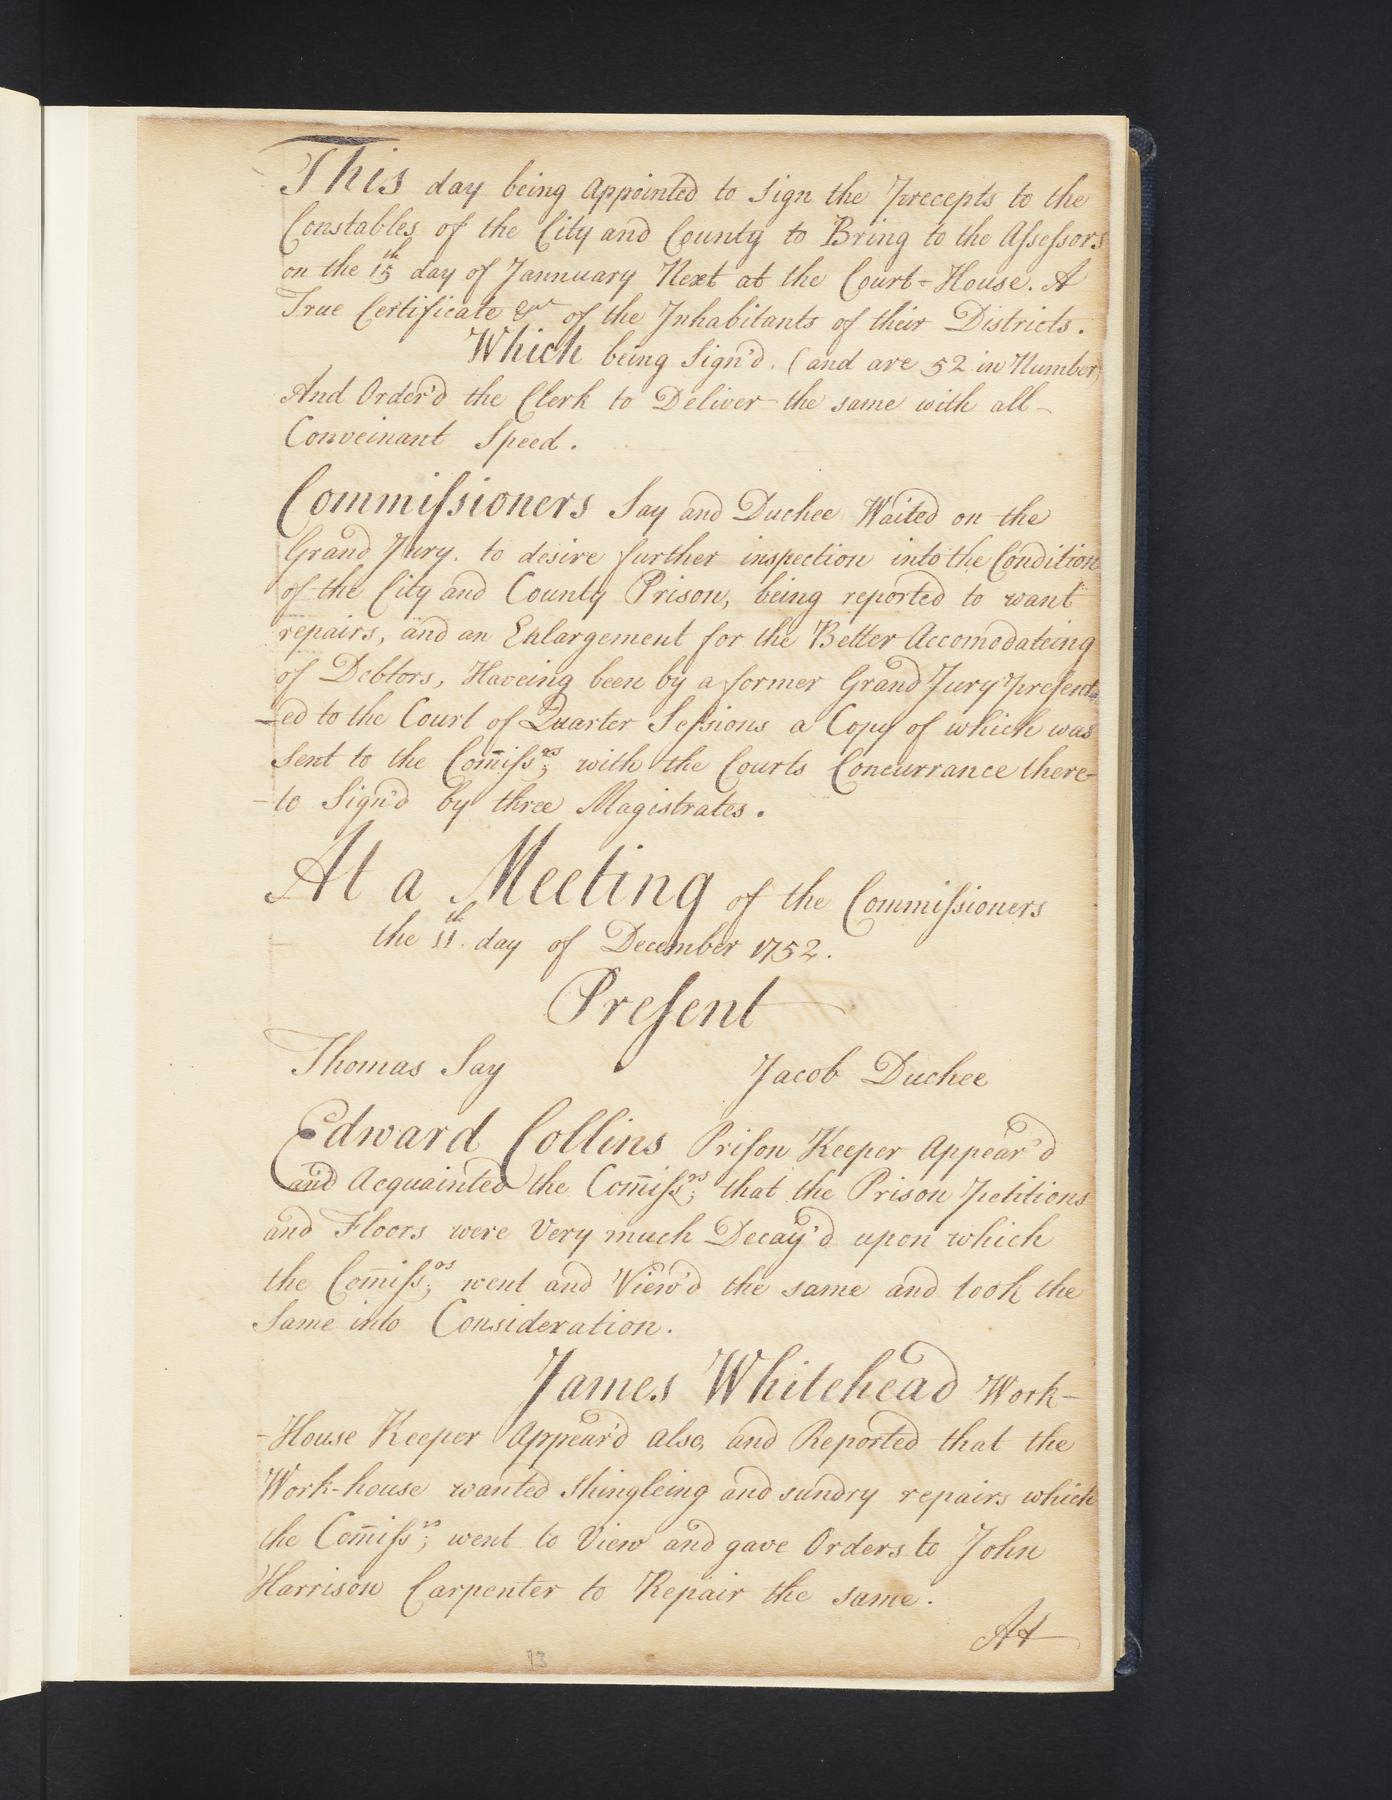 This day being appointed to Sign the Precepts to the
Constables of the City and County to Bring to the Aſseſsors
on the 15th day of Jannuary Next at the Court-House. A
True Certificate &c of the Inhabitants of their Districts.
Which being Sign'd. (and are 52 in Number)
And Order'd the Clerk to Deliver the same with all
Conveinant Speed.
Commiſsioners Say and Duchee Waited on the
Grand Jury. to desire further inspection into the Condition
of the City and County Prison, being reported to want
repairs, and an Enlargement for the Better Accomodateing
of Debtors, Haveing been by a former Grand Jury Preſent-
-ed to the Court of Quarter Seſsions a Copy of which was
Sent to the Com̄iſsrs; with the Courts Concurrance there-
-to Sign'd by three Magistrates.
At a Meeting of the Commiſsioners
the 11th. day of December 1752.
Preſent
Thomas Say Jacob Duchee
Edward Collins Priſon Keeper Appear'd
and Acquainted the Com̄iſsrs; that the Prison Petitions
and Floors were Very much Decay'd upon which
the Com̄iſsrs; went and View'd the same and took the
Same into Consideration.
James Whitehead Work-
-House Keeper Appear'd also, and Reported that the
Work-house wanted Shingleing and sundry repairs which
the Com̄iſsrs; went to View and gave Orders to John
Harrison Carpenter to Repair the same.
At
73